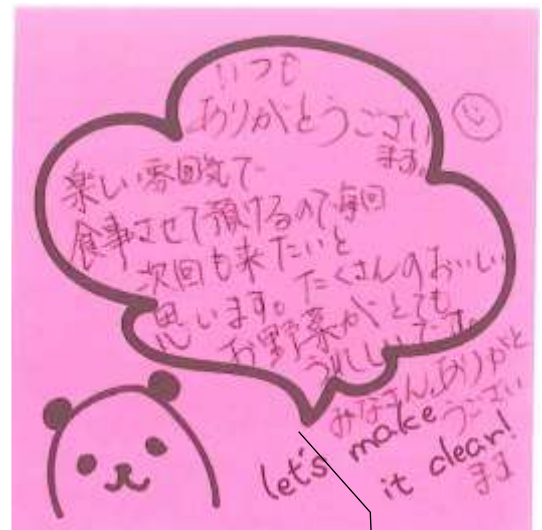 いつも
ありがとうござい
ます。
楽しい雰囲気で
食事させて預けるので毎回
次回も来たいと
思います。たくさんのおいしい
お野菜がとても
うれしいです。
みなさん、ありがと
うござい
ます
let's make
it clear!